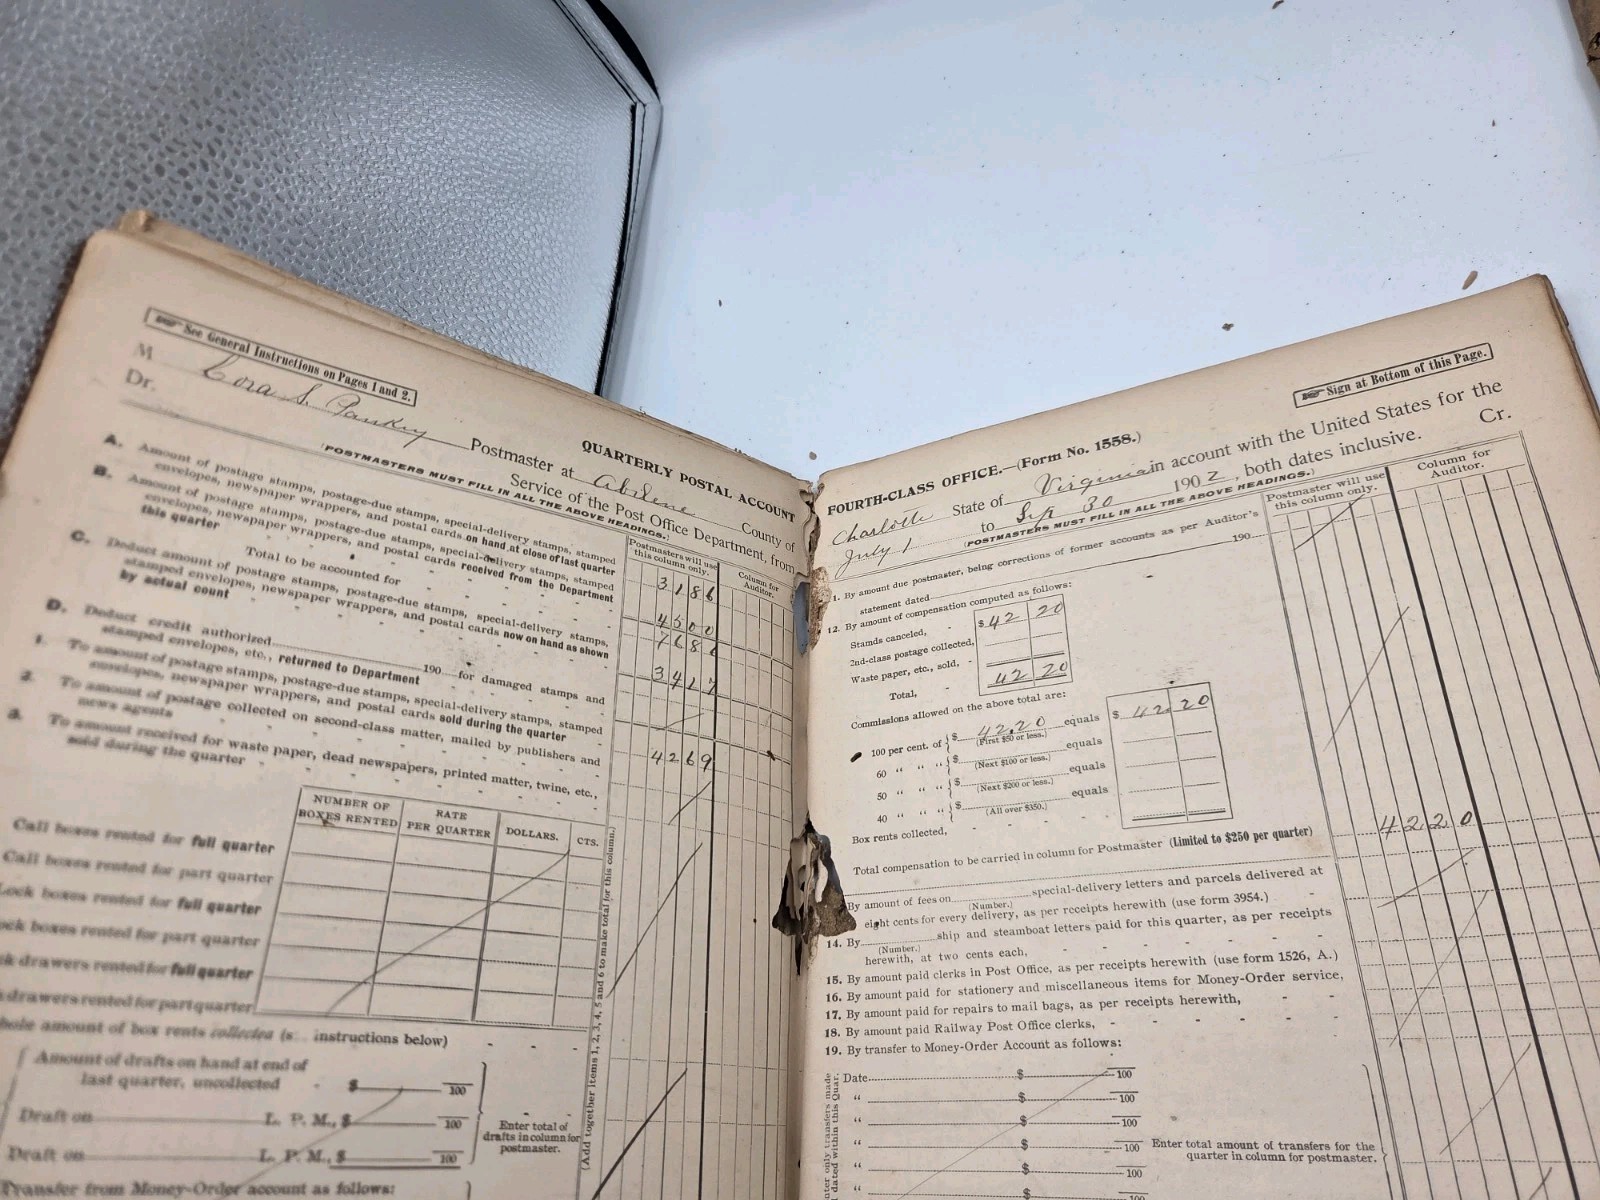 See General Instructions on Pages 1 and 2.
M Cora S. Pankey Postmaster at Abilene County of
Dr.
QUARTERLY POSTAL ACCOUNT
Service of the Post Office Department, from
(POSTMASTERS MUST FILL IN ALL THE ABOVE HEADINGS.)
Postmasters will use this column only.
Column for Auditor.
A. Amount of postage stamps, postage-due stamps, special-delivery stamps, stamped
envelopes, newspaper wrappers, and postal cards on hand at close of last quarter 3186
B. Amount of postage stamps, postage-due stamps, special-delivery stamps, stamped
envelopes, newspaper wrappers, and postal cards received from the Department
this quarter 4500
Total to be accounted for 7686
C. Deduct amount of postage stamps, postage-due stamps, special-delivery stamps,
stamped envelopes, newspaper wrappers, and postal cards now on hand as shown
by actual count 3417
D. Deduct credit authorized 190 for damaged stamps and
stamped envelopes, etc., returned to Department
1. To amount of postage stamps, postage-due stamps, special-delivery stamps, stamped
envelopes, newspaper wrappers, and postal cards sold during the quarter 4269
2. To amount of postage collected on second-class matter, mailed by publishers and
news agents
3. To amount received for waste paper, dead newspapers, printed matter, twine, etc.,
sold during the quarter
NUMBER OF BOXES RENTED
RATE PER QUARTER
DOLLARS.
CTS.
Call boxes rented for full quarter
Call boxes rented for part quarter
Lock boxes rented for full quarter
boxes rented for part quarter
drawers rented for full quarter
drawers rented for part quarter
amount of box rents collected instructions below)
Amount of drafts on hand at end of
last quarter, uncollected $ 100
Draft on L. P. M., $ 100
Draft on L. P. M., $ 100
Enter total of
drafts in column for
postmaster.
Transfer from Money-Order account as follows:
(Add together items 1, 2, 3, 4, 5 and 6 to make total for this column.)
Sign at Bottom of this Page.
FOURTH-CLASS OFFICE.—(Form No. 1558.)
Charlotte State of Virginia in account with the United States for the
July 1 to Sep 30 1902, both dates inclusive.
Cr.
(POSTMASTERS MUST FILL IN ALL THE ABOVE HEADINGS.)
Postmaster will use this column only.
Column for Auditor.
1. By amount due postmaster, being corrections of former accounts as per Auditor's
statement dated 190
12. By amount of compensation computed as follows:
Stamds canceled, $42 20
2nd-class postage collected,
Waste paper, etc., sold,
Total, 42 20
Commissions allowed on the above total are:
100 per cent. of $ 42.20 equals $ 42.20
(First $50 or less.)
60 " " " $ equals
(Next $100 or less.)
50 " " " $ equals
(Next $200 or less.)
40 " " " $ equals
(All over $350.)
Box rents collected,
Total compensation to be carried in column for Postmaster (Limited to $250 per quarter) 4220
By amount of fees on special-delivery letters and parcels delivered at
(Number.)
eight cents for every delivery, as per receipts herewith (use form 3954.)
14. By ship and steamboat letters paid for this quarter, as per receipts
(Number.)
herewith, at two cents each,
15. By amount paid clerks in Post Office, as per receipts herewith (use form 1526, A.)
16. By amount paid for stationery and miscellaneous items for Money-Order service,
17. By amount paid for repairs to mail bags, as per receipts herewith,
18. By amount paid Railway Post Office clerks,
19. By transfer to Money-Order Account as follows:
Date $ 100
" $ 100
" $ 100
" $ 100
" $ 100
" $ 100
Enter total amount of transfers for the
quarter in column for postmaster.
only transfers made
dated within this Quar.